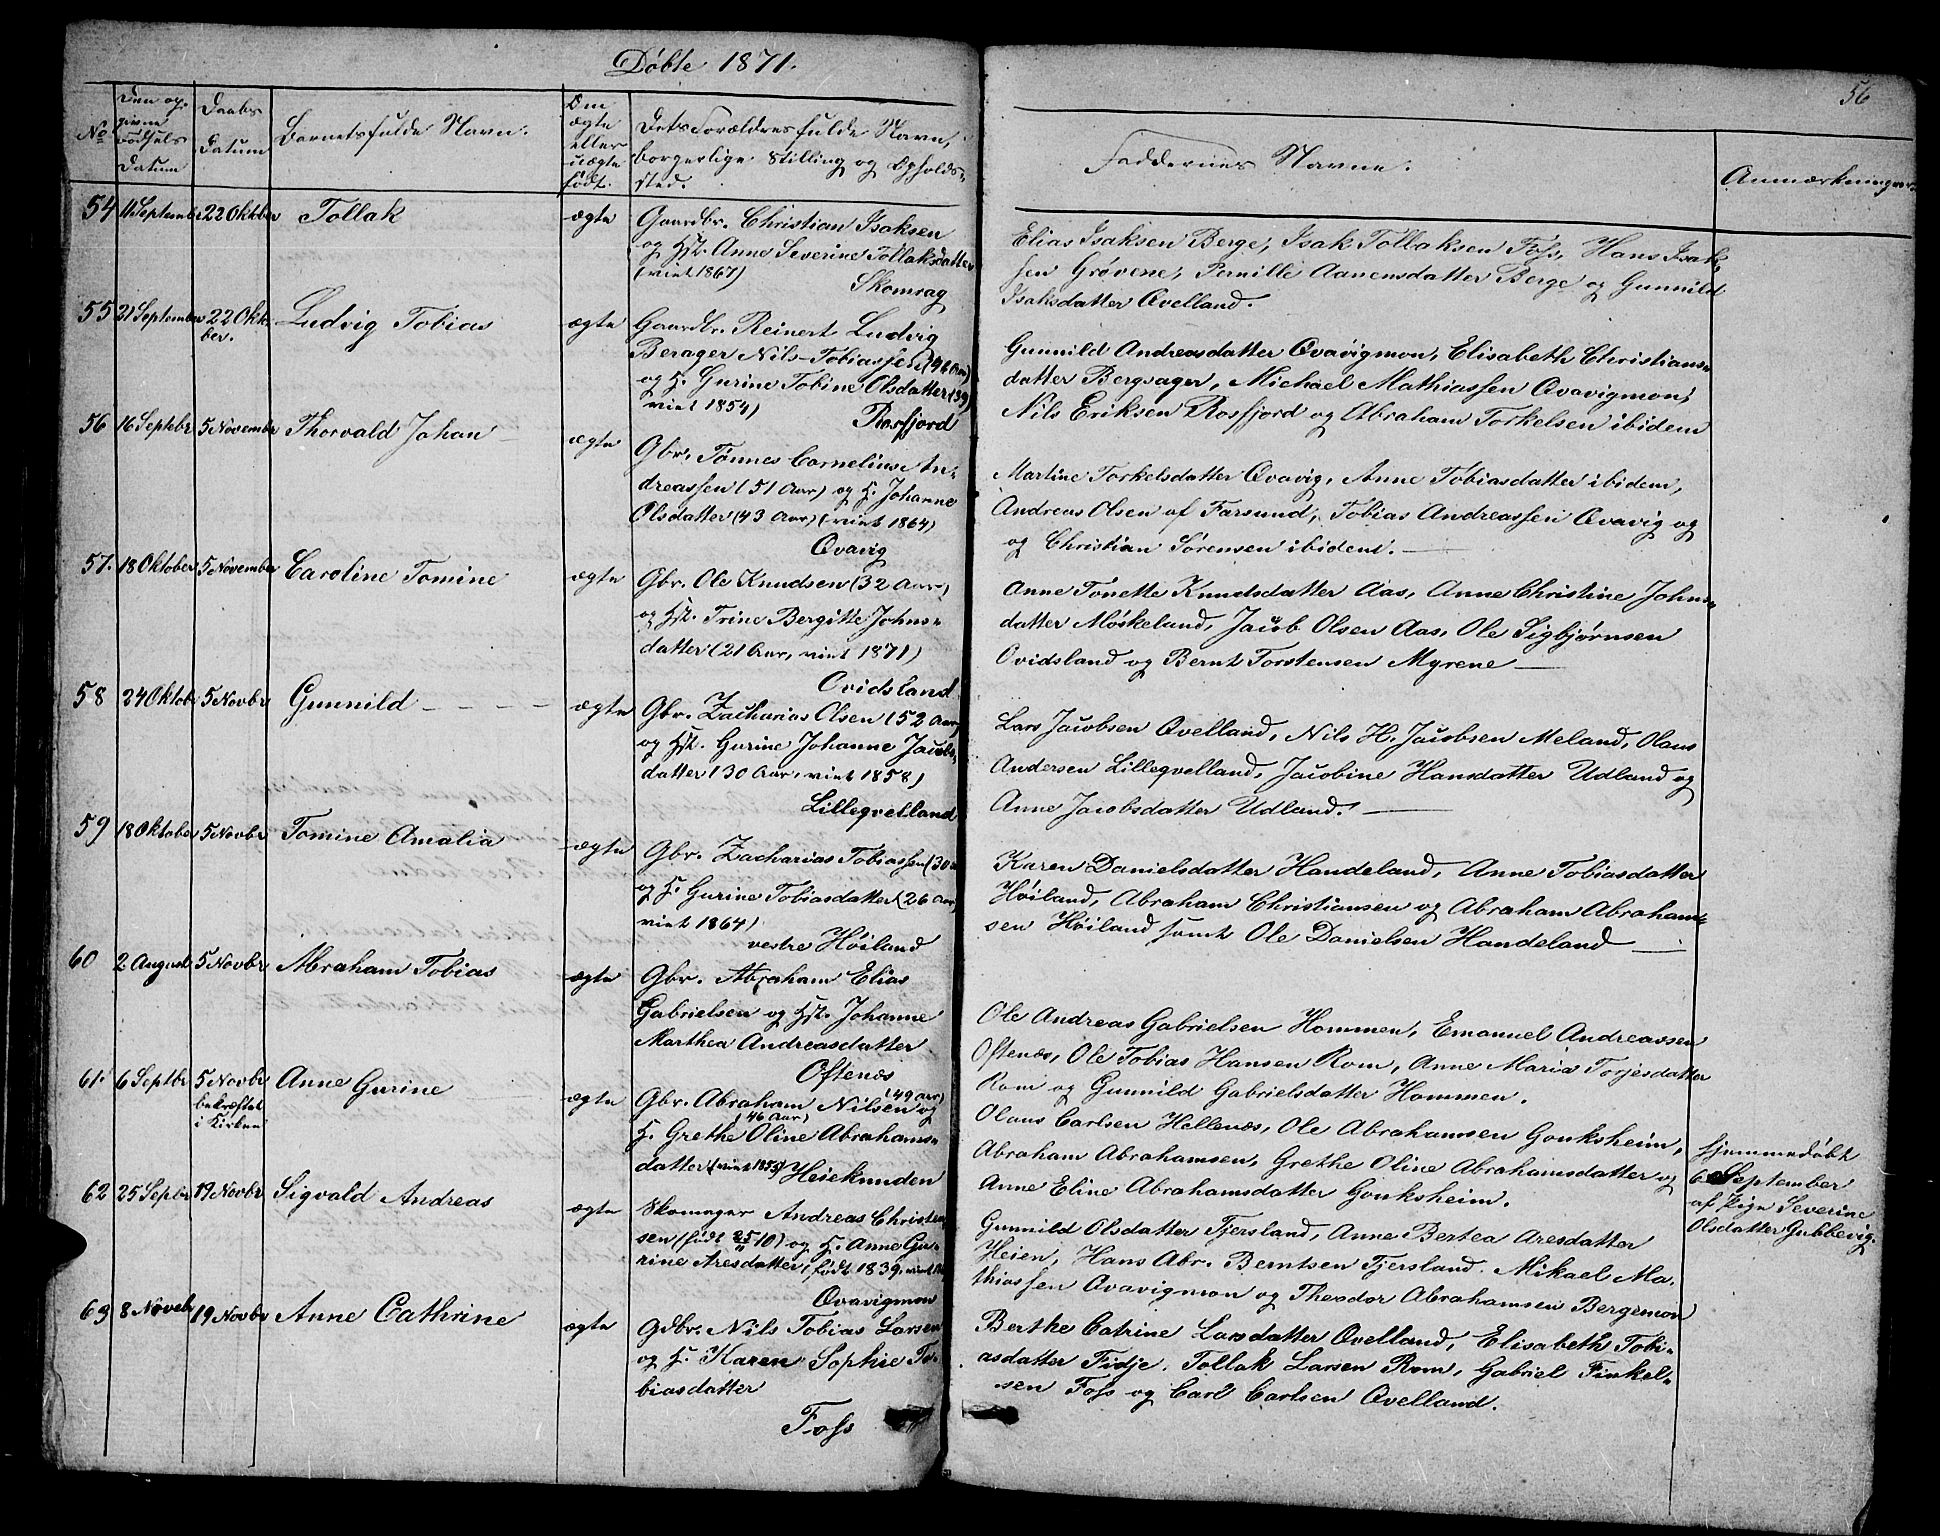 Døbte 1871.
56
No
Den op-
givne
Fødsels
Datum
Daabs
Datum
Barnets fulde Navn.
Om
ægte
eller
uægte
født.
Dets Forældres fulde Navn,
borgerlige Stilling og Opholds-
sted.
Faddernes Navne.
Anmærkninger
54 11 September 22 Oktber Tollak ægte
Gaardbr. Christian Isaksen
og Hst. Anne Severine Tollaksdatter
(viet 1867)
Skomrag
Elias Isaksen Berge, Isak Tollaksen Foss, Hans Isak-
sen Grøvene, Pernille Aanensdatter Berge og Gunnild
Isaksdatter Qvelland.
55 21 September 22 Okto-
ber.
Ludvig Tobias ægte
Gaardbr. Reinert Ludvig
Berager Nils Tobiassen (46 Aar)
og H. Gurine Tobine Olsdatter (39)
viet 1854)
Rosfjord
Gunnild Andreasdatter Qvavigmon, Elisabeth Christians-
datter Bergsager, Michael Mathiassen Qvavigmon,
Nils Eriksen Rosfjord og Abraham Torkelsen ibidem
56 16 Septebr 5 Novembr Thorvald Johan ægte
Gbr. Tønnes Cornelius An-
dreassen (51 Aar) og H. Johanne
Olsdatter (43 Aar) (viet 1864)
Qvavig
Martine Torkelsdatter Qvavig, Anne Tobiasdatter ibidem,
Andreas Olsen af Farsund, Tobias Andreassen Qvavig og
og Christian Sørensen ibidem.
57. 18 Oktober 5 November Caroline Tomine ægte
Gbr. Ole Knudsen (32 Aar)
og Hst. Trine Bergitte Johns-
datter (21 Aar, viet 1871)
Ovidsland
Anne Tonette Knudsdatter Aas, Anne Christine Johns-
datter Møskeland, Jacob Olsen Aas, Ole Sigbjørnsen
Ovidsland og Bernt Torstensen Myrene
58 24 Oktobr 5 Novbr Gunnild ægte
Gbr. Zacharias Olsen (52 Aar)
og Hst. Gurine Johanne Jacobs-
datter (30 Aar, viet 1858)
Lilleqvelland
Lars Jacobsen Qvelland, Nils H. Jacobsen Meland, Olaus
Andersen Lilleqvelland, Jacobine Hansdatter Udland og
Anne Jacobsdatter Udland.
59 18 Oktober 5 Novbr Tomine Amalia ægte
Gbr. Zacharias Tobiassen (30 a
og H. Gurine Tobiasdatter (26 Aar)
viet 1864)
vestre Høiland
Karen Danielsdatter Handeland, Anne Tobiasdatter
Høiland, Abraham Christiansen og Abraham Abraham-
sen Høiland samt Ole Danielsen Handeland
60 2 August 5 Novbr Abraham Tobias ægte
Gbr. Abraham Elias
Gabrielsen og Hst. Johanne
Marthea Andreasdatter
Oftenæs
Ole Andreas Gabrielsen Hommen, Emanuel Andreassen
Oftenæs, Ole Tobias Hansen Rom, Anne Maria Torjesdatter
Rom og Gunnild Gabrielsdatter Hommen.
61. 6 Septbr 5 Novbr
bekræftet
i Kirken
Anne Gurine ægte
(49 Aar)
Gbr. Abraham Nilsen og
(46 Aar)
H. Grethe Oline Abrahams-
datter (viet 1853) Heieknuden
Olaus Carlsen Hellenæs, Ole Abrahamsen Gonksheim,
Abraham Abrahamsen, Grethe Oline Abrahamsdatter og
Anne Eline Abrahamsdatter Gonksheim.
Hjemmedøbt
6 September
af Pige Severine
Olsdatter Gubbevig.
62 25 Sepbr 19 Novbr Sigvald Andreas ægte
Skomager Andreas Christen-
sen (født 25/10) og H. Anne Gu-
rine Aresdatter, født 1839, viet
Qvavigmon
Gunnild Olsdatter Tjersland, Anne Bertea Aresdatter
Heien, Hans Abr. Berntsen Tjersland. Mikael Ma-
thiassen Qvavigmon og Theodor Abrahamsen Bergemon
63 8 Novebr 19 Novbr Anne Cathrine ægte
Gdbr. Nils Tobias Larsen
og H. Karen Sophie To-
biasdatter
Foss
Berthe Catrine Larsdatter Qvelland, Elisabeth Tobi-
asdatter Fidje. Tollak Larsen Rom, Gabriel Finkel-
sen Foss og Carl Carlsen Qvelland.